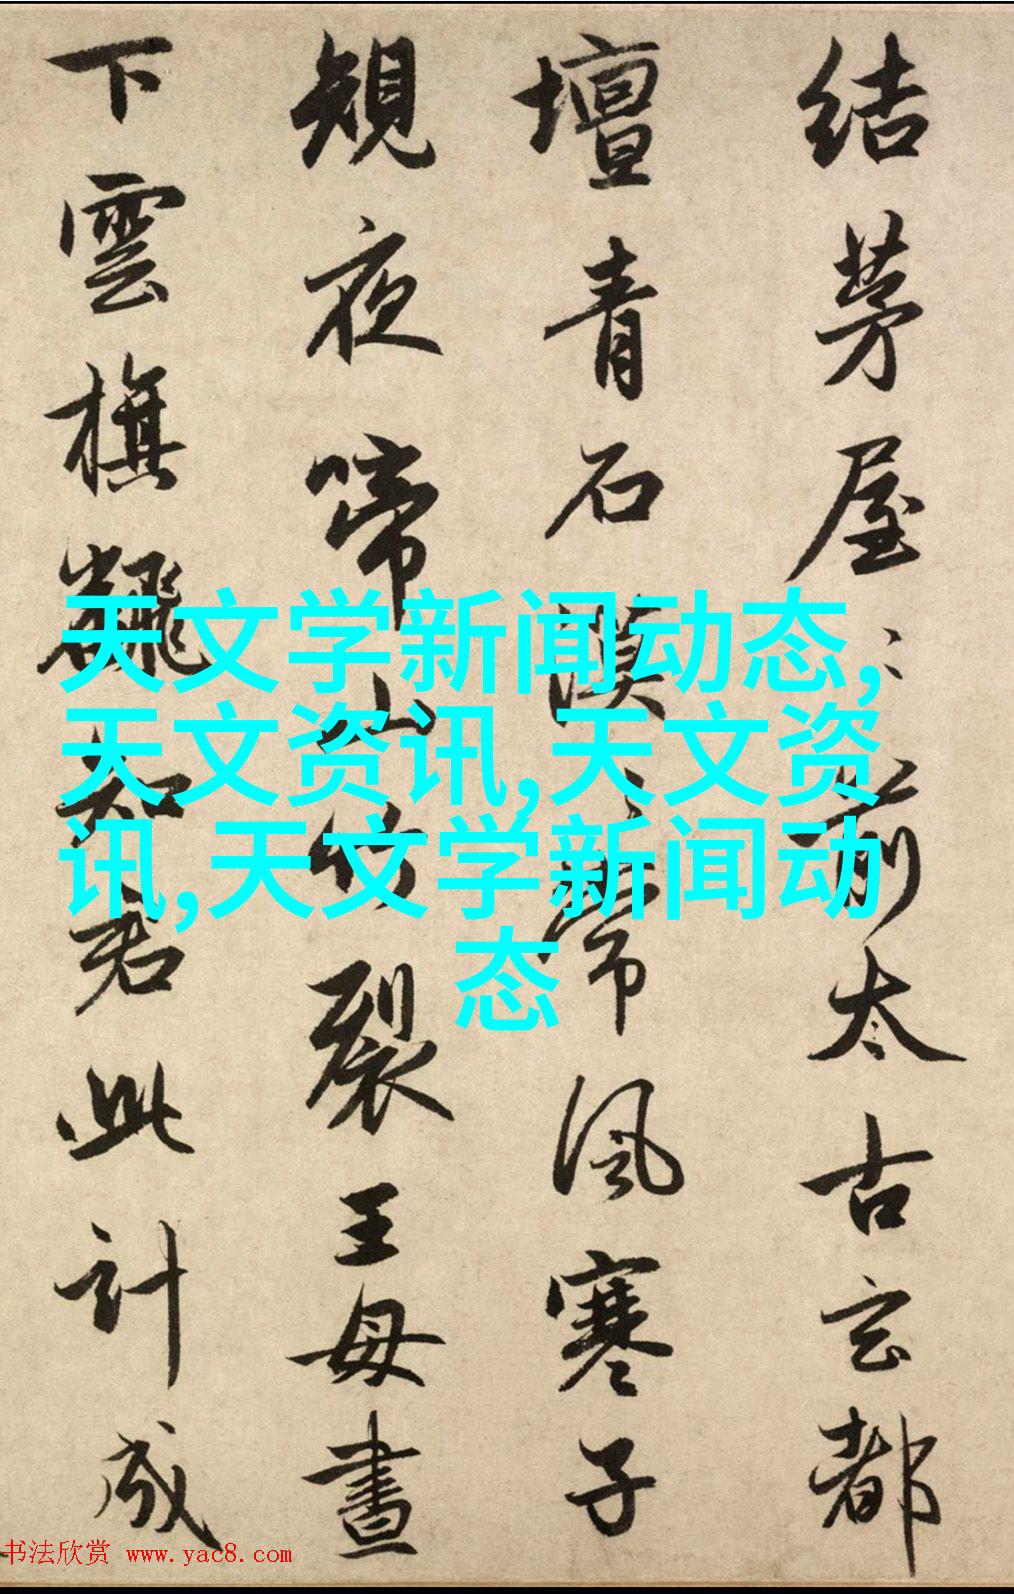 結茅屋前太古玄都
壇青石漠常風寒子
規夜啼山竹裂王母晝
下雲旗翻知君此計成
天文学新闻动态,
天文资讯,天文资
讯,天文学新闻动
态
书法欣赏 www.yac8.com